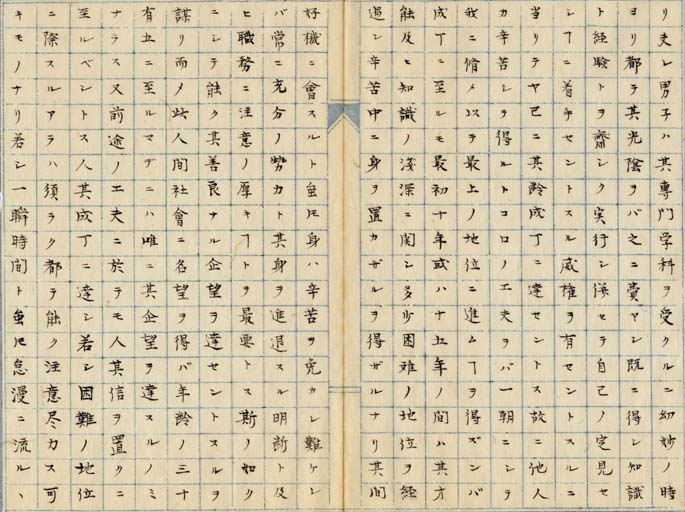 リ夫レ男子ハ其専門学科ヲ受クルニ幼妙ノ時
ヨリ都テ其光陰ヲバ之ニ費ヤシ既ニ得シ知識
ト経験トヲ齋シク実行シ併セテ自己ノ定見セ
シヿニ着手セントスル威権ヲ有セントスルニ
当リテヤ已ニ其齢成丁ニ達セントス故ニ他人
カ辛苦シテ得ルトコロノ工夫ヲバ一朝ニシテ
我ニ脩メ以テ最上ノ地位ニ進ムヿヲ得ズンバ
成丁ニ至ルモ最初十年或ハ十五年ノ間ハ其才
能及ヒ知識ノ浅深ニ関シ多少困難ノ地位ヲ経
過シ辛苦中ニ身ヲ置カザルヲ得ザルナリ其間
好機ニ會スルト虽𪜈身ハ辛苦ヲ免カレ難ケレ
バ常ニ充分ノ労力ト其身ヲ進退スル明断ト及
ヒ職務ニ注意ノ厚キヿトヲ最要トス斯ノ如ク
ニシテ能ク其善良ナル企望ヲ達セントスルヲ
謀リ而メ此人間社會ニ名望ヲ得バ年齢ノ三十
有五ニ至ルマデニハ唯ニ其企望ヲ達スルノミ
ナラス又前途ノ工夫ニ於テモ人其信ヲ置クニ
至ルベシトス人其成丁ニ達シ若シ困難ノ地位
ニ際スルアラハ須ラク都テ能ク注意尽力ス可
キモノナリ若シ一瞬時間ト虽𪜈怠漫ニ流ルヽ